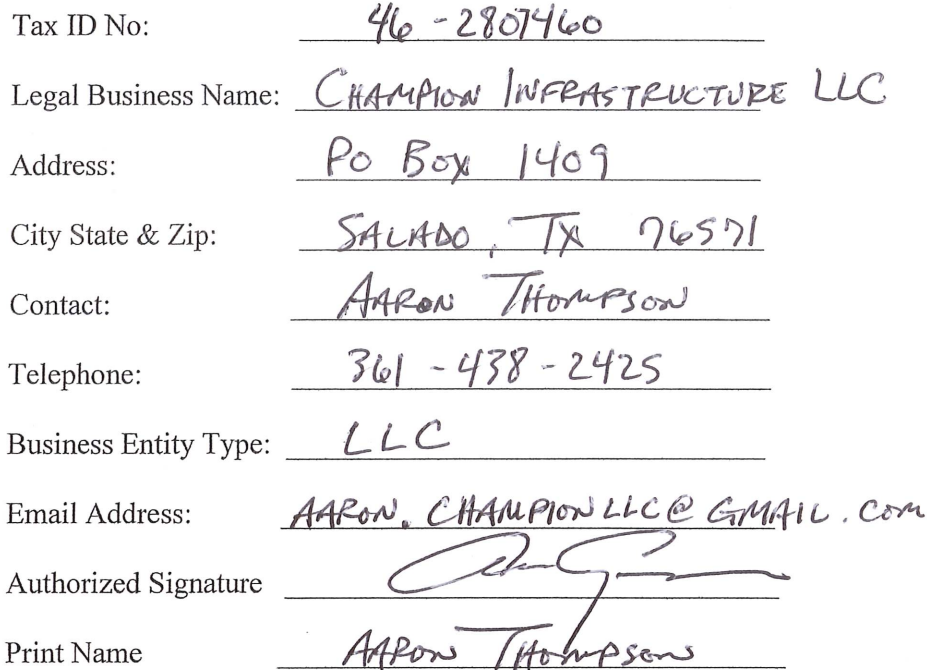 Tax ID No: 46-2807460
Legal Business Name: CHAMPION INFRASTRUCTURE LLC
Address: PO BOX 1409
City State & Zip: SALADO, TX 76571
Contact: AARON THOMPSON
Telephone: 361-438-2425
Business Entity Type: LLC
Email Address: AARON.CHAMPIONLLC@GMAIL.COM
Authorized Signature
Print Name AARON THOMPSON